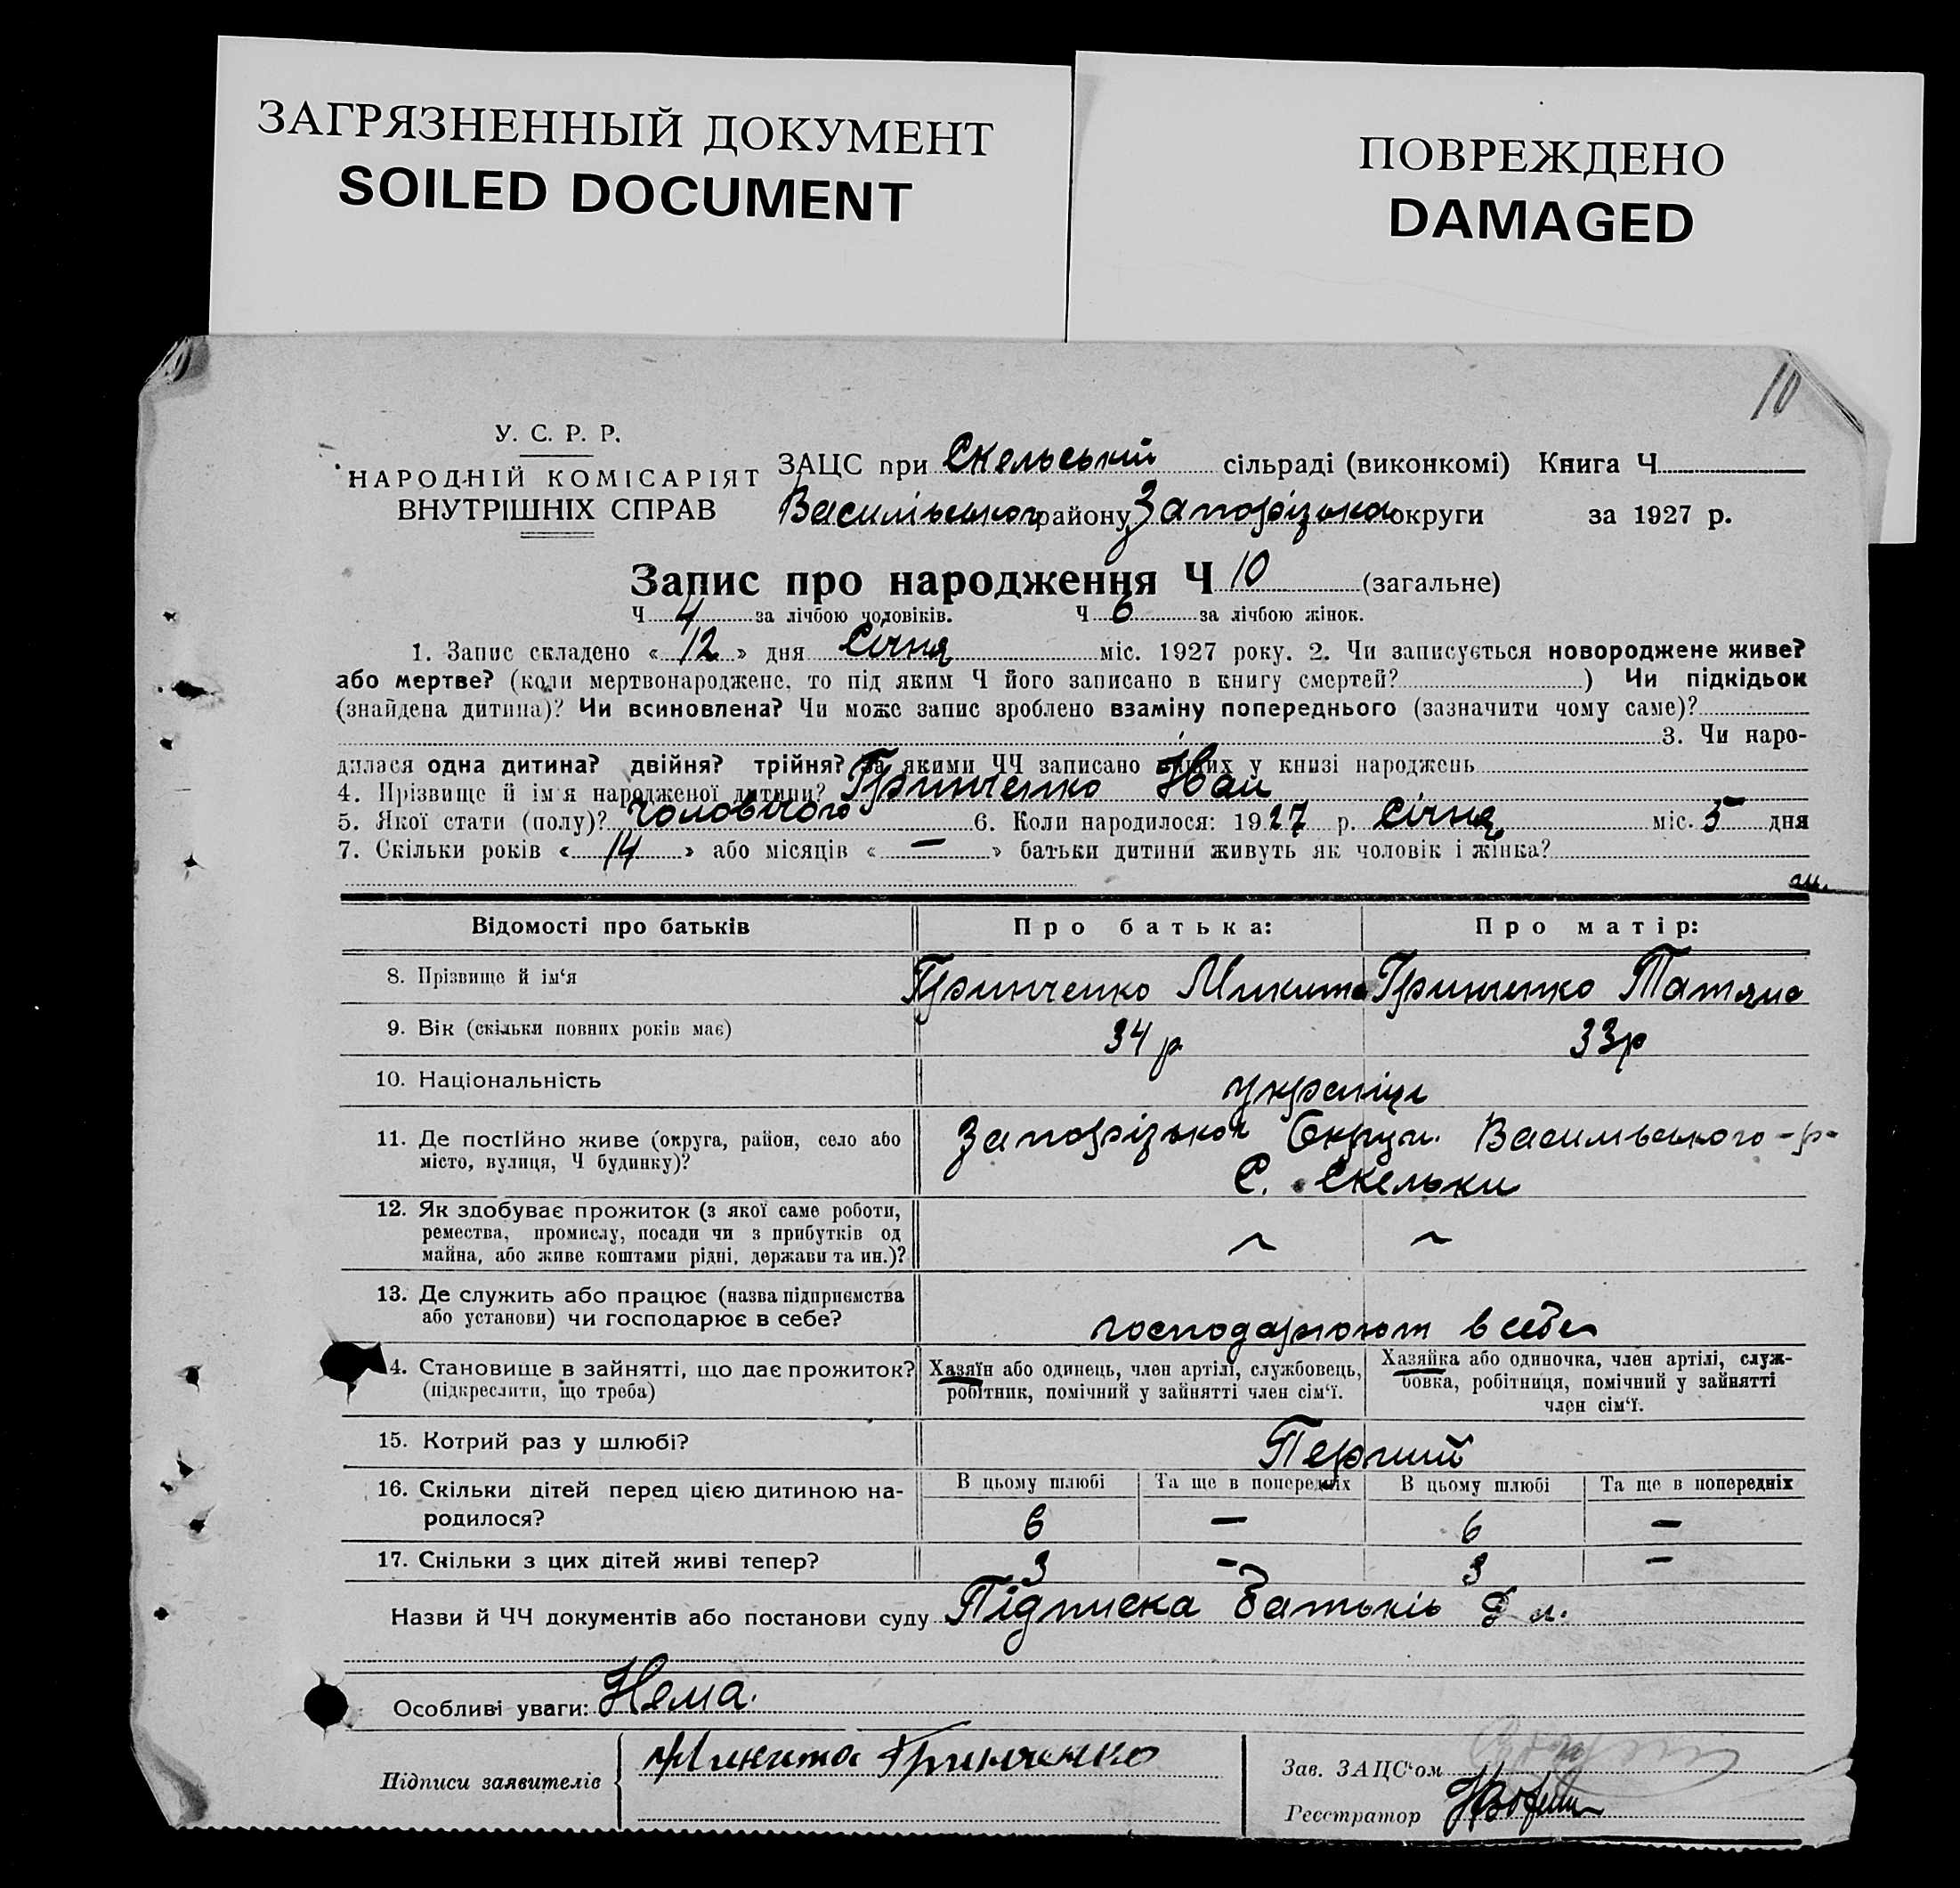 ЗАГРЯЗНЕННЫЙ ДОКУМЕНТ
SOILED DOCUMENT
ПОВРЕЖДЕНО
DAMAGED
10
У. С. Р. Р.
НАРОДНІЙ КОМІСАРІЯТ
ВНУТРІШНІХ СПРАВ
ЗАЦС при Скельській сільраді (виконкомі) Книга Ч
Васильвського району Запорізька округи за 1927 р.
Запис про народження Ч 10 (загальне)
Ч 4 за лічбою чоловіків. Ч 6 за лічбою жінок.
1. Запис складено « 12 » дня Січня міс. 1927 року. 2. Чи записується новороджене живе?
або мертве? (коли мертвонароджене, то під яким Ч його записано в книгу смертей? ) Чи підкідьок
(знайдена дитина)? Чи всиновлена? Чи може запис зроблено взаміну попереднього (зазначити чому саме)?
3. Чи наро-
дилася одна дитина? двійня? трійня? За якими ЧЧ записано інших у книзі народжень
4. Прізвище й ім'я народженої дитини? Гринченко Іван
5. Якої стати (полу)? чоловічого 6. Коли народилося: 1927 р. Січня міс. 5 дня
7. Скільки років « 14 » або місяців « — » батьки дитини живуть як чоловік і жінка?
Відомості про батьків Про батька: Про матір:
8. Прізвище й ім‘я Гринченко Микита Гринченко Татяна
9. Вік (скільки повних років має) 34 р 33 р
10. Національність українці
11. Де постійно живе (округа, район, село або Запорізької Округи. Васильвського - р-
місто, вулиця, Ч будинку)? С. Скельки
12. Як здобуває прожиток (з якої саме роботи,
ремества, промислу, посади чи з прибутків од
майна, або живе коштами рідні, держави та ин.)?
13. Де служить або працює (назва підприємства
або установи) чи господарює в себе? господарюють в себе
14. Становище в зайнятті, що дає прожиток? Хазяїн або одинець, член артілі, службовець, Хазяйка або одиночка, член артілі, служ-
(підкреслити, що треба) робітник, помічний у зайнятті член сім‘ї. бовка, робітниця, помічний у зайнятті
член сім‘ї.
15. Котрий раз у шлюбі? Перший
16. Скільки дітей перед цією дитиною на- В цьому шлюбі Та ще в попередніх В цьому шлюбі Та ще в попередніх
родилося? 6 — 6 —
17. Скільки з цих дітей живі тепер? 3 - 3 -
Назви й ЧЧ документів або постанови суду Підписка Батьків
Особливі уваги: Нема.
Підписи заявителів Микита Гринченко
Зав. ЗАЦС‘ом
Реєстратор